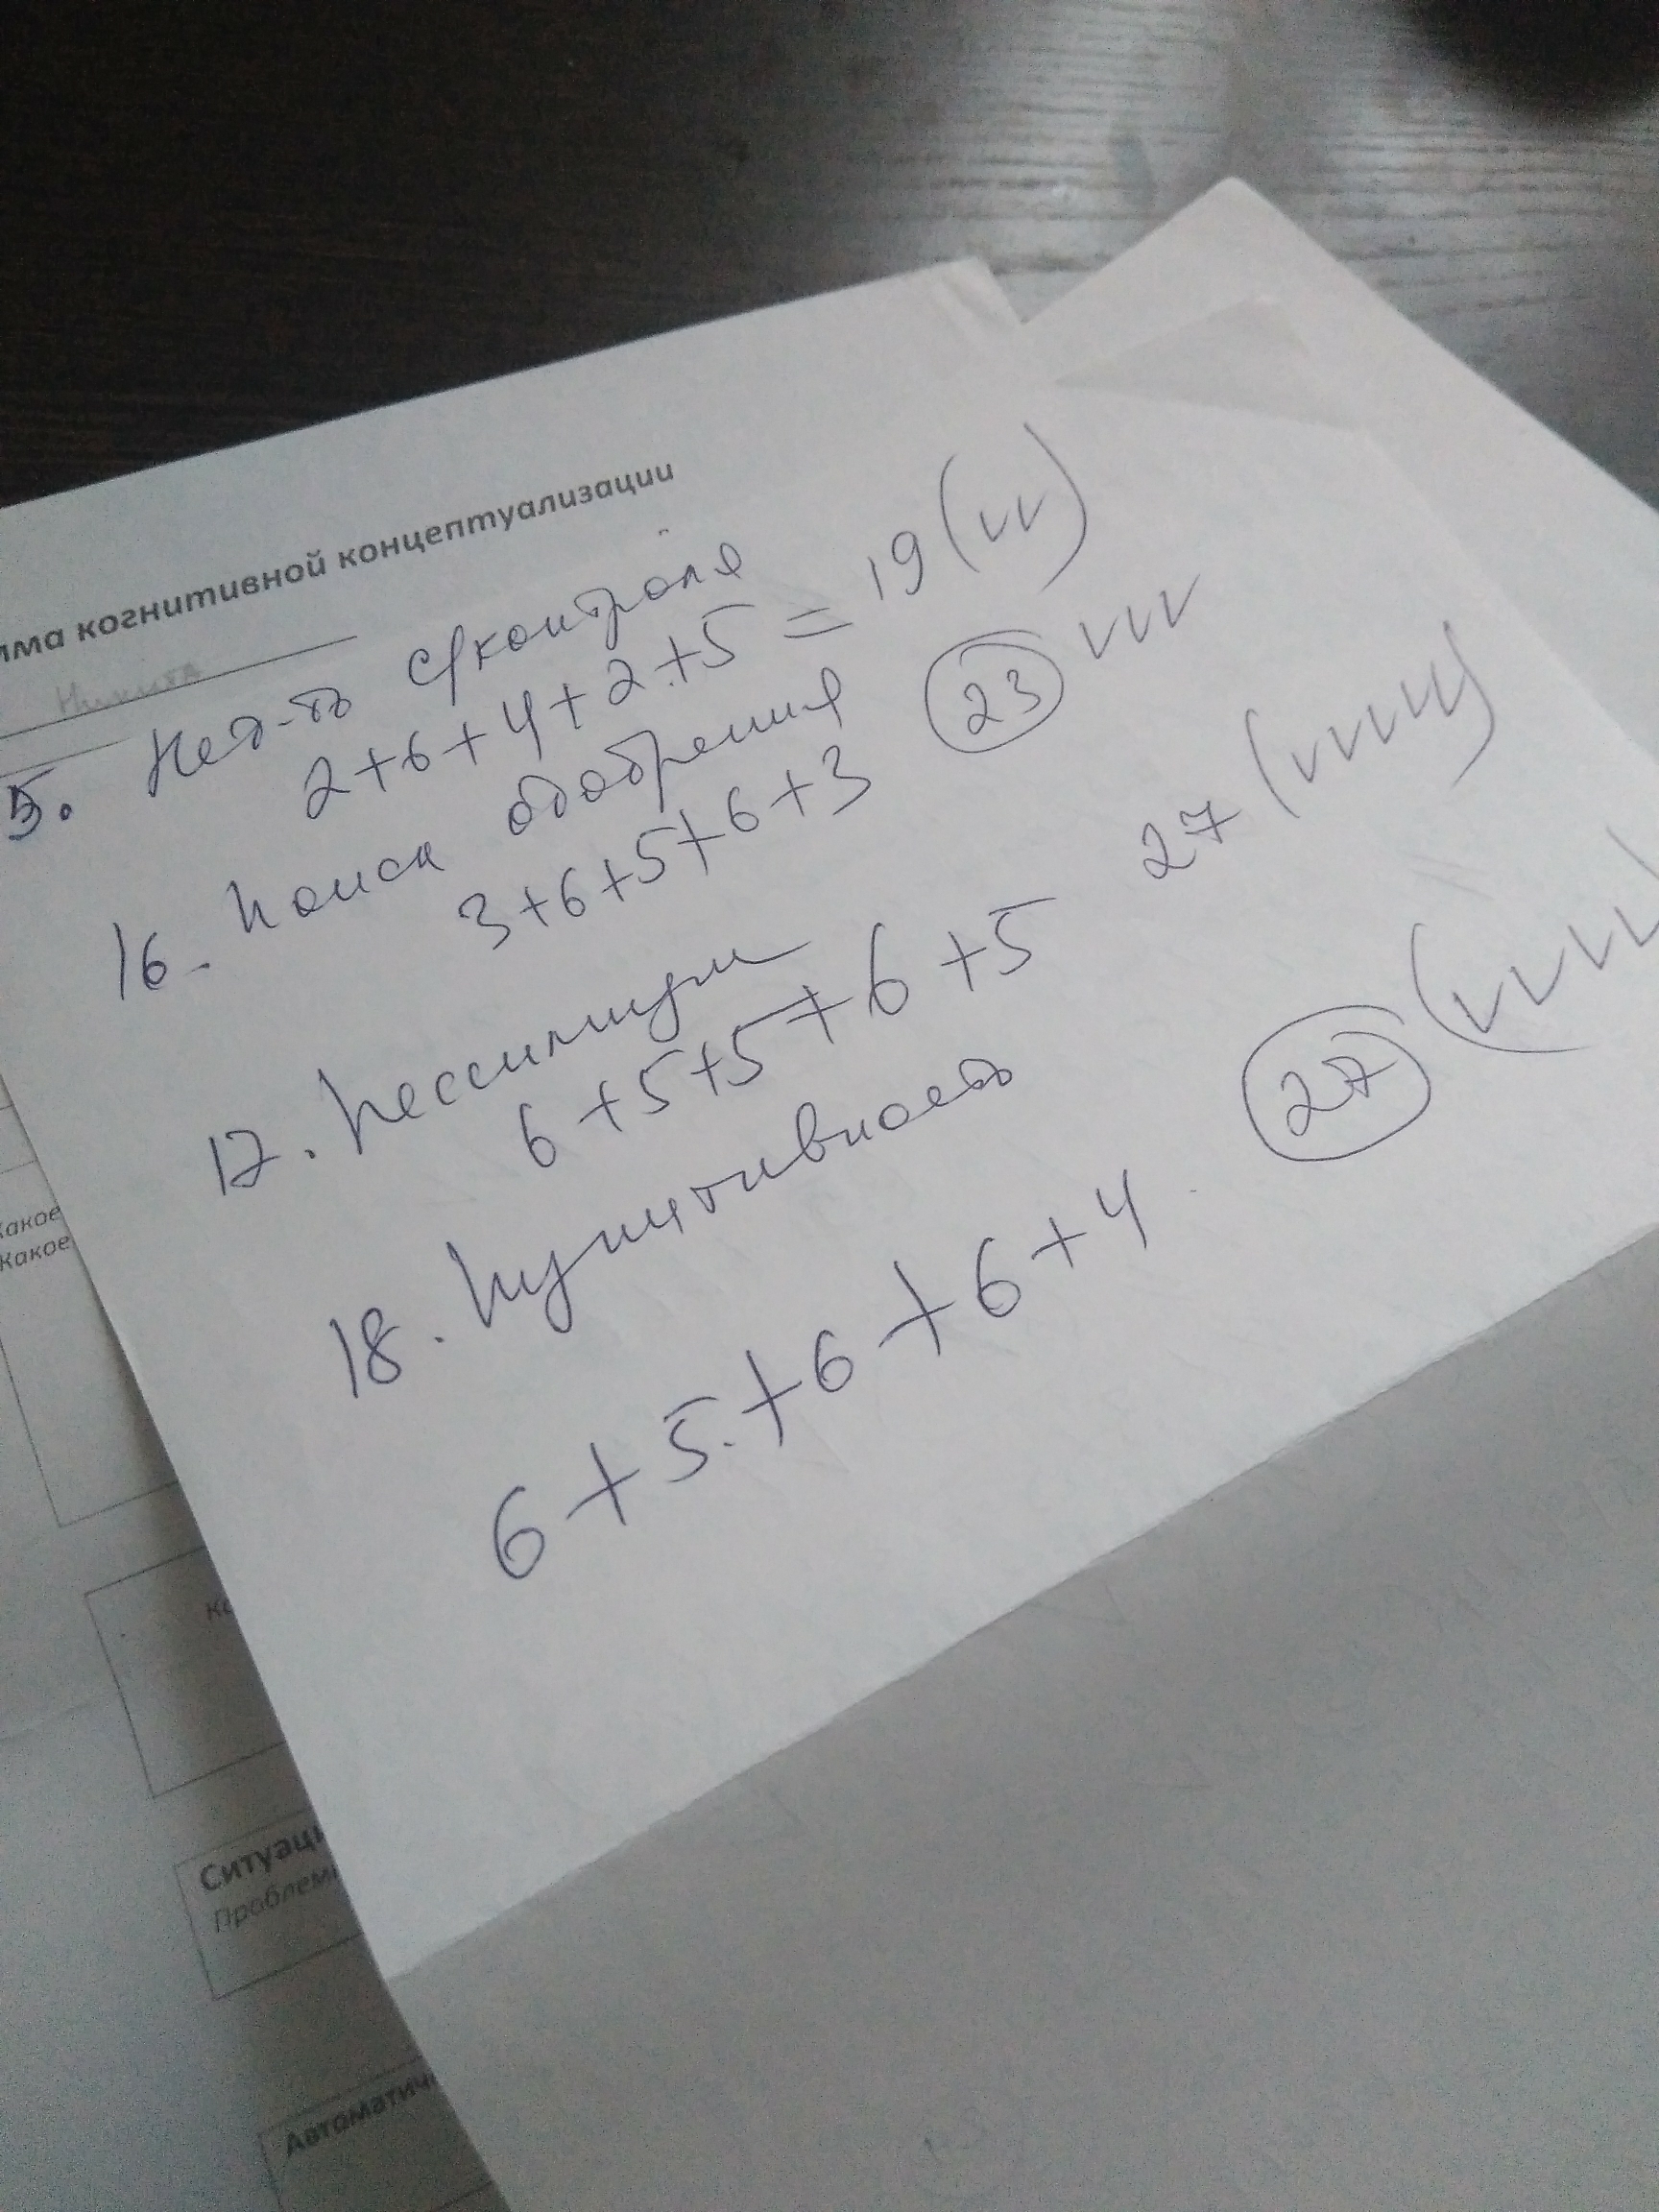 има когнитивной концептуализации
Никита
5. Нед-ть с/контроля
2+6+4+2+5 = 19 (vv)
16. Поиск одобрения
3+6+5+6+3 23 vvv
17. Пессимизм
6+5+5+6+5 27 (vvvv)
18. Пунитивность
6+5+6+6+4 27 (vvvv
Какое
Какое
Ситуаци
Проблем
Автоматич